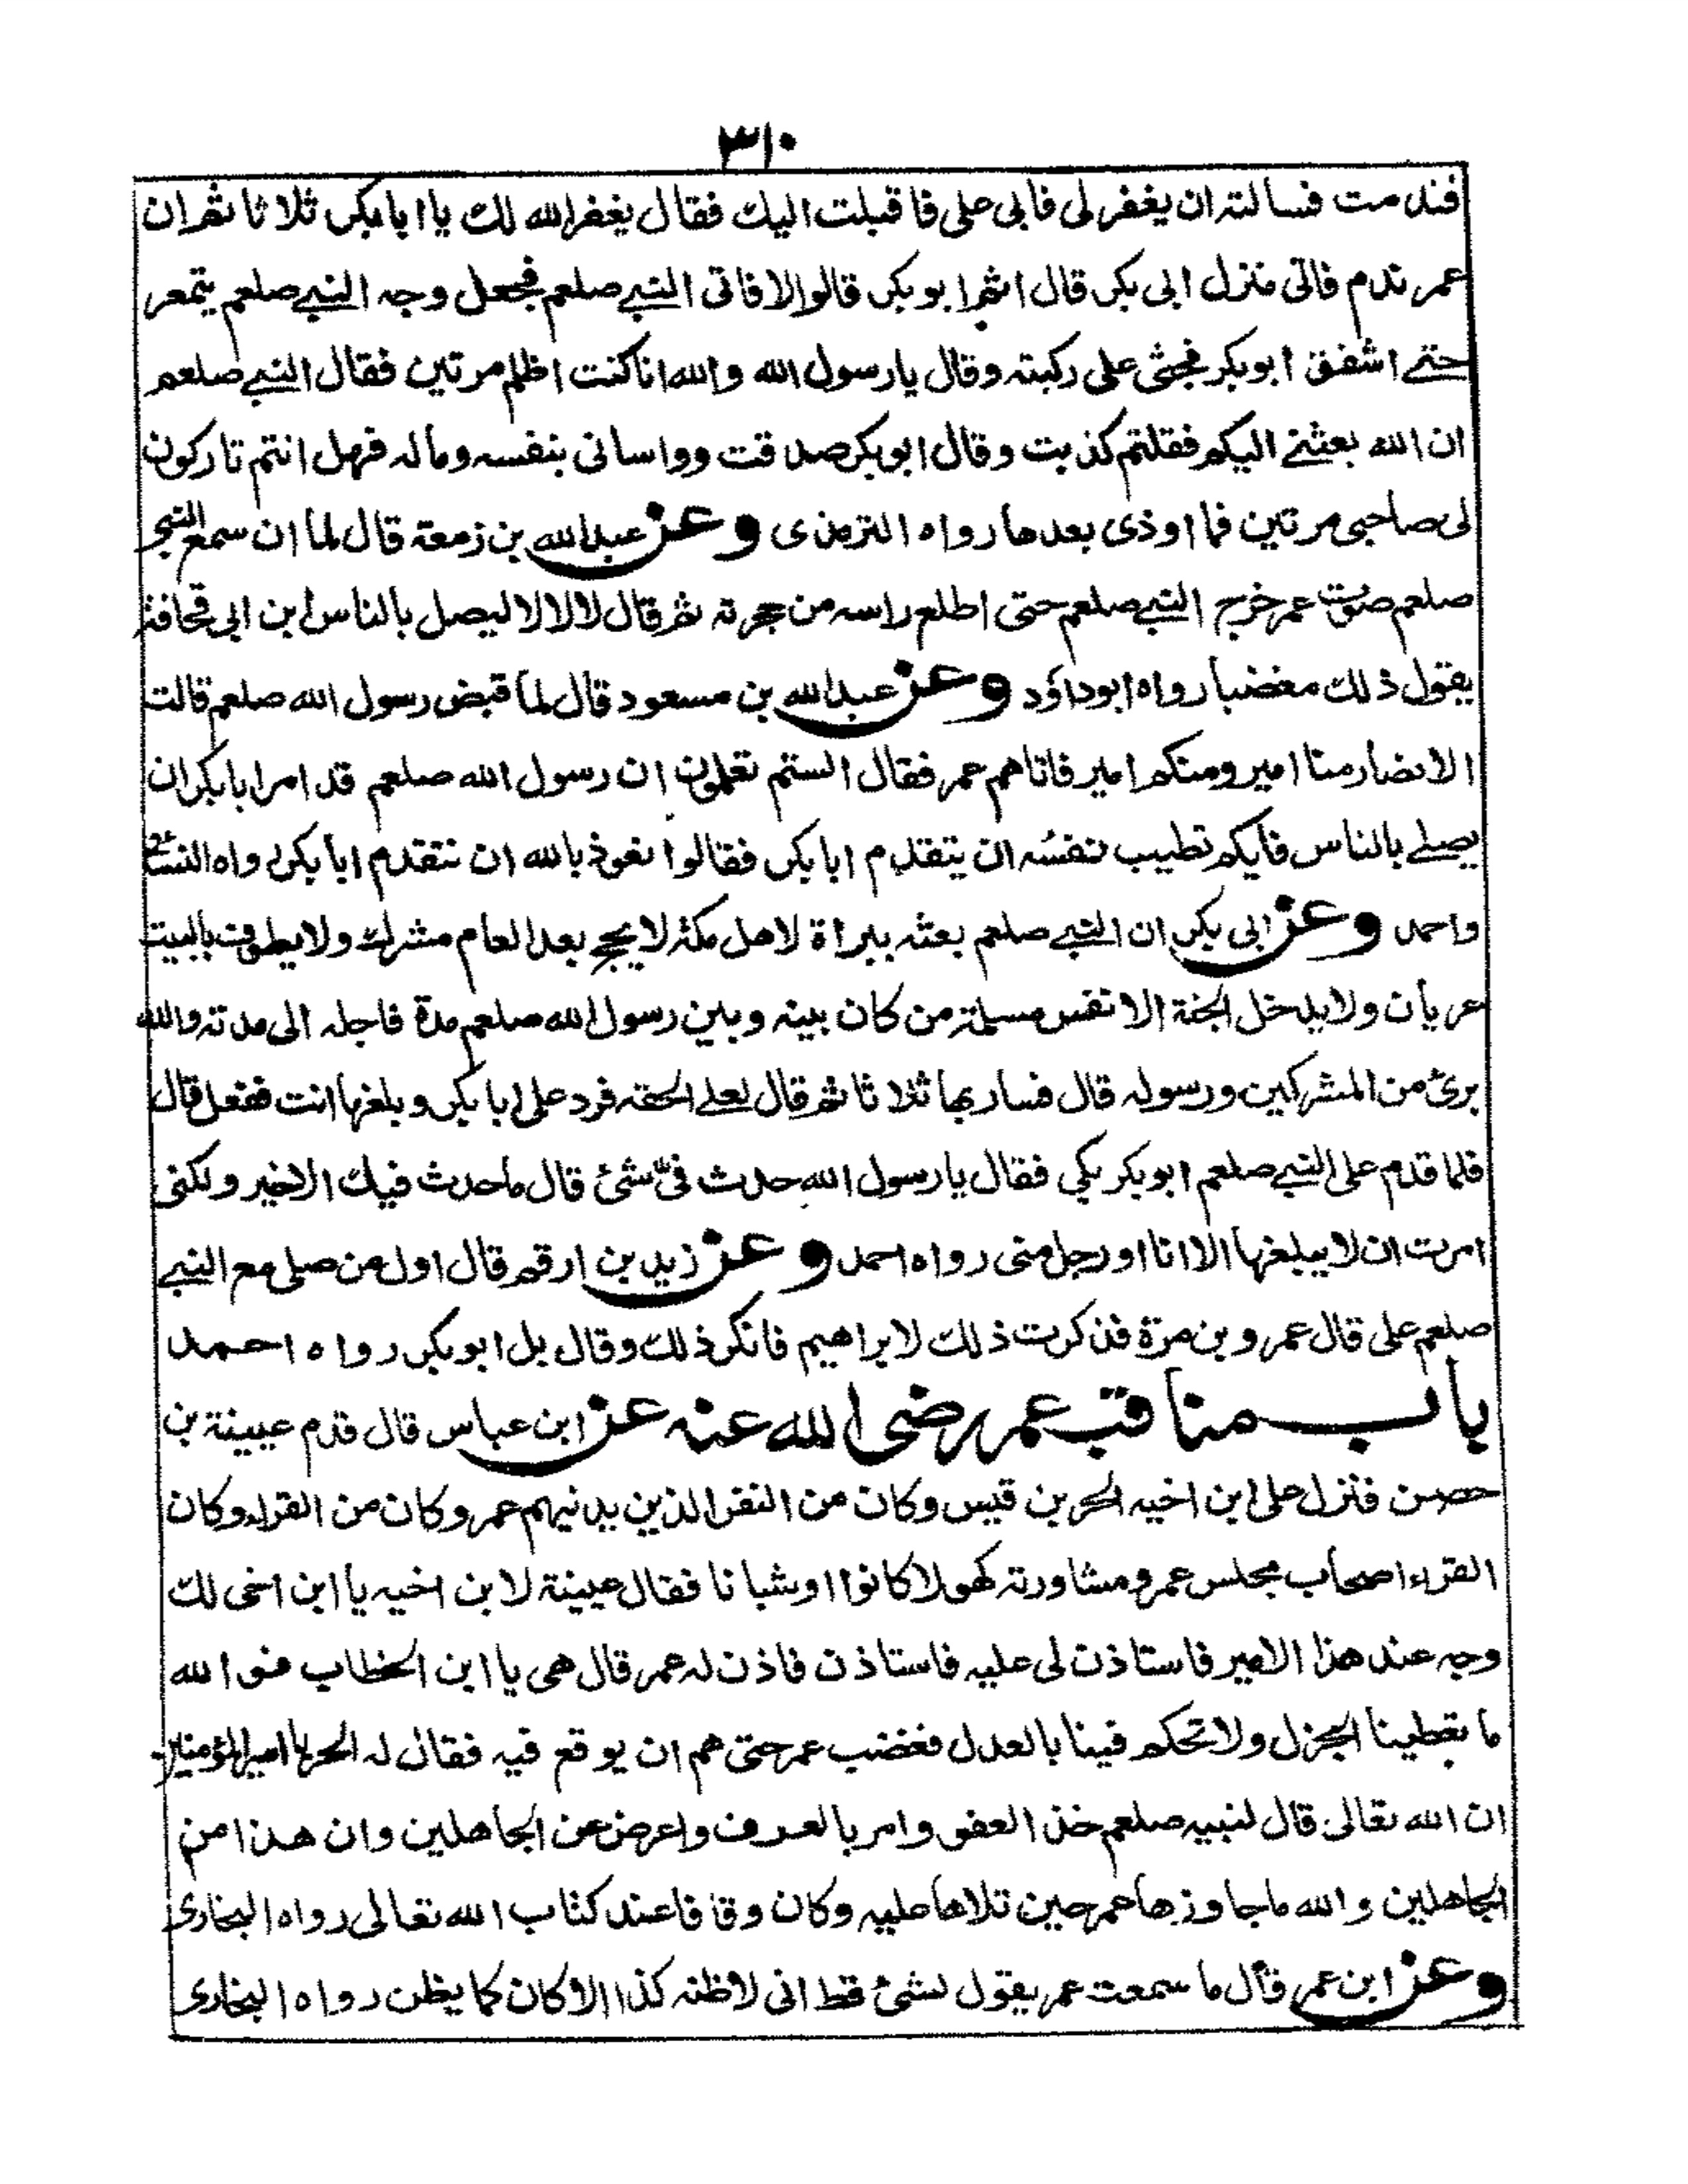 ٣١٠
فندمت فسالته ان يغفر لى فابى على فاقبلت اليك فقال يغفر الله لك يا ابا بكر ثلاثا ثم ان
عمر ندم فاتى منزل ابى بكر قال اثم ابو بكر قالوا لا فاتى النبي صلعم فجعل وجه النبي صلعم يتمعر
حتے اشفق ابو بكر فجثى على ركبته وقال يا رسول الله والله انا كنت اظلم مرتين فقال النبي صلعم
ان الله بعثنے اليكم فقلتم كذبت وقال ابو بكر صدقت وواسانى بنفسه وماله فهل انتم تاركون
لى صاحبى مرتين فما اوذى بعدها رواه الترمذى وعن عبد الله بن زمعة قال لما ان سمع النبي
صلعم صوت عمر خرج النبي صلعم حتى اطلع راسه من حجرته ثم قال لا لا لا ليصل بالناس ابن ابى قحافة
يقول ذلك مغضبا رواه ابو داؤد وعن عبد الله بن مسعود قال لما قبض رسول الله صلعم قالت
الانصار منا امير ومنكم امير فاتاهم عمر فقال الستم تعلمون ان رسول الله صلعم قد امر ابا بكر ان
يصلے بالناس فايكم تطيب نفسه ان يتقدم ابا بكر فقالوا نعوذ بالله ان نتقدم ابا بكر رواه النسائى
واحمد وعن ابى بكر ان النبي صلعم بعثه ببراة لاهل مكة لا يحج بعد العام مشرك ولا يطوف بالبيت
عريان ولا يدخل الجنة الا نفس مسلمة من كان بينه وبين رسول الله صلعم مدة فاجله الى مدته والله
برئ من المشركين ورسوله قال فسار بها ثلاثا ثم قال لعلے الحقه فرد على ابا بكر وبلغها انت ففعل قال
فلما قدم على النبي صلعم ابو بكر بكي فقال يا رسول الله حدث فيّ شئ قال ما حدث فيك الا خير ولكنى
امرت ان لا يبلغها الا انا او رجل منى رواه احمد وعن زيد بن ارقم قال اول من صلى مع النبي
صلعم على قال عمرو بن مرة فذكرت ذلك لابراهيم فانكر ذلك وقال بل ابو بكر رواه احمد
باب مناقب عمر رضى الله عنه عن ابن عباس قال قدم عيينة بن
حصن فنزل على ابن اخيه الحر بن قيس وكان من النفر الذين يدنيهم عمر وكان من القراء وكان
القراء اصحاب مجلس عمر ومشاورته كهولا كانوا او شبانا فقال عيينة لابن اخيه يا ابن اخى لك
وجه عند هذا الامير فاستاذن لى عليه فاستاذن فاذن له عمر قال هى يا ابن الخطاب فو الله
ما تعطينا الجزل ولا تحكم فينا بالعدل فغضب عمر حتى هم ان يوقع فيه فقال له الحر يا امير المؤمنين
ان الله تعالى قال لنبيه صلعم خذ العفو وامر بالعرف واعرض عن الجاهلين وان هذا من
الجاهلين والله ما جاوزها عمر حين تلاها عليه وكان وقافا عند كتاب الله تعالى رواه البخارى
وعن ابن عمر قال ما سمعت عمر يقول لشئ قط انى لاظنه كذا الا كان كما يظن رواه البخارى